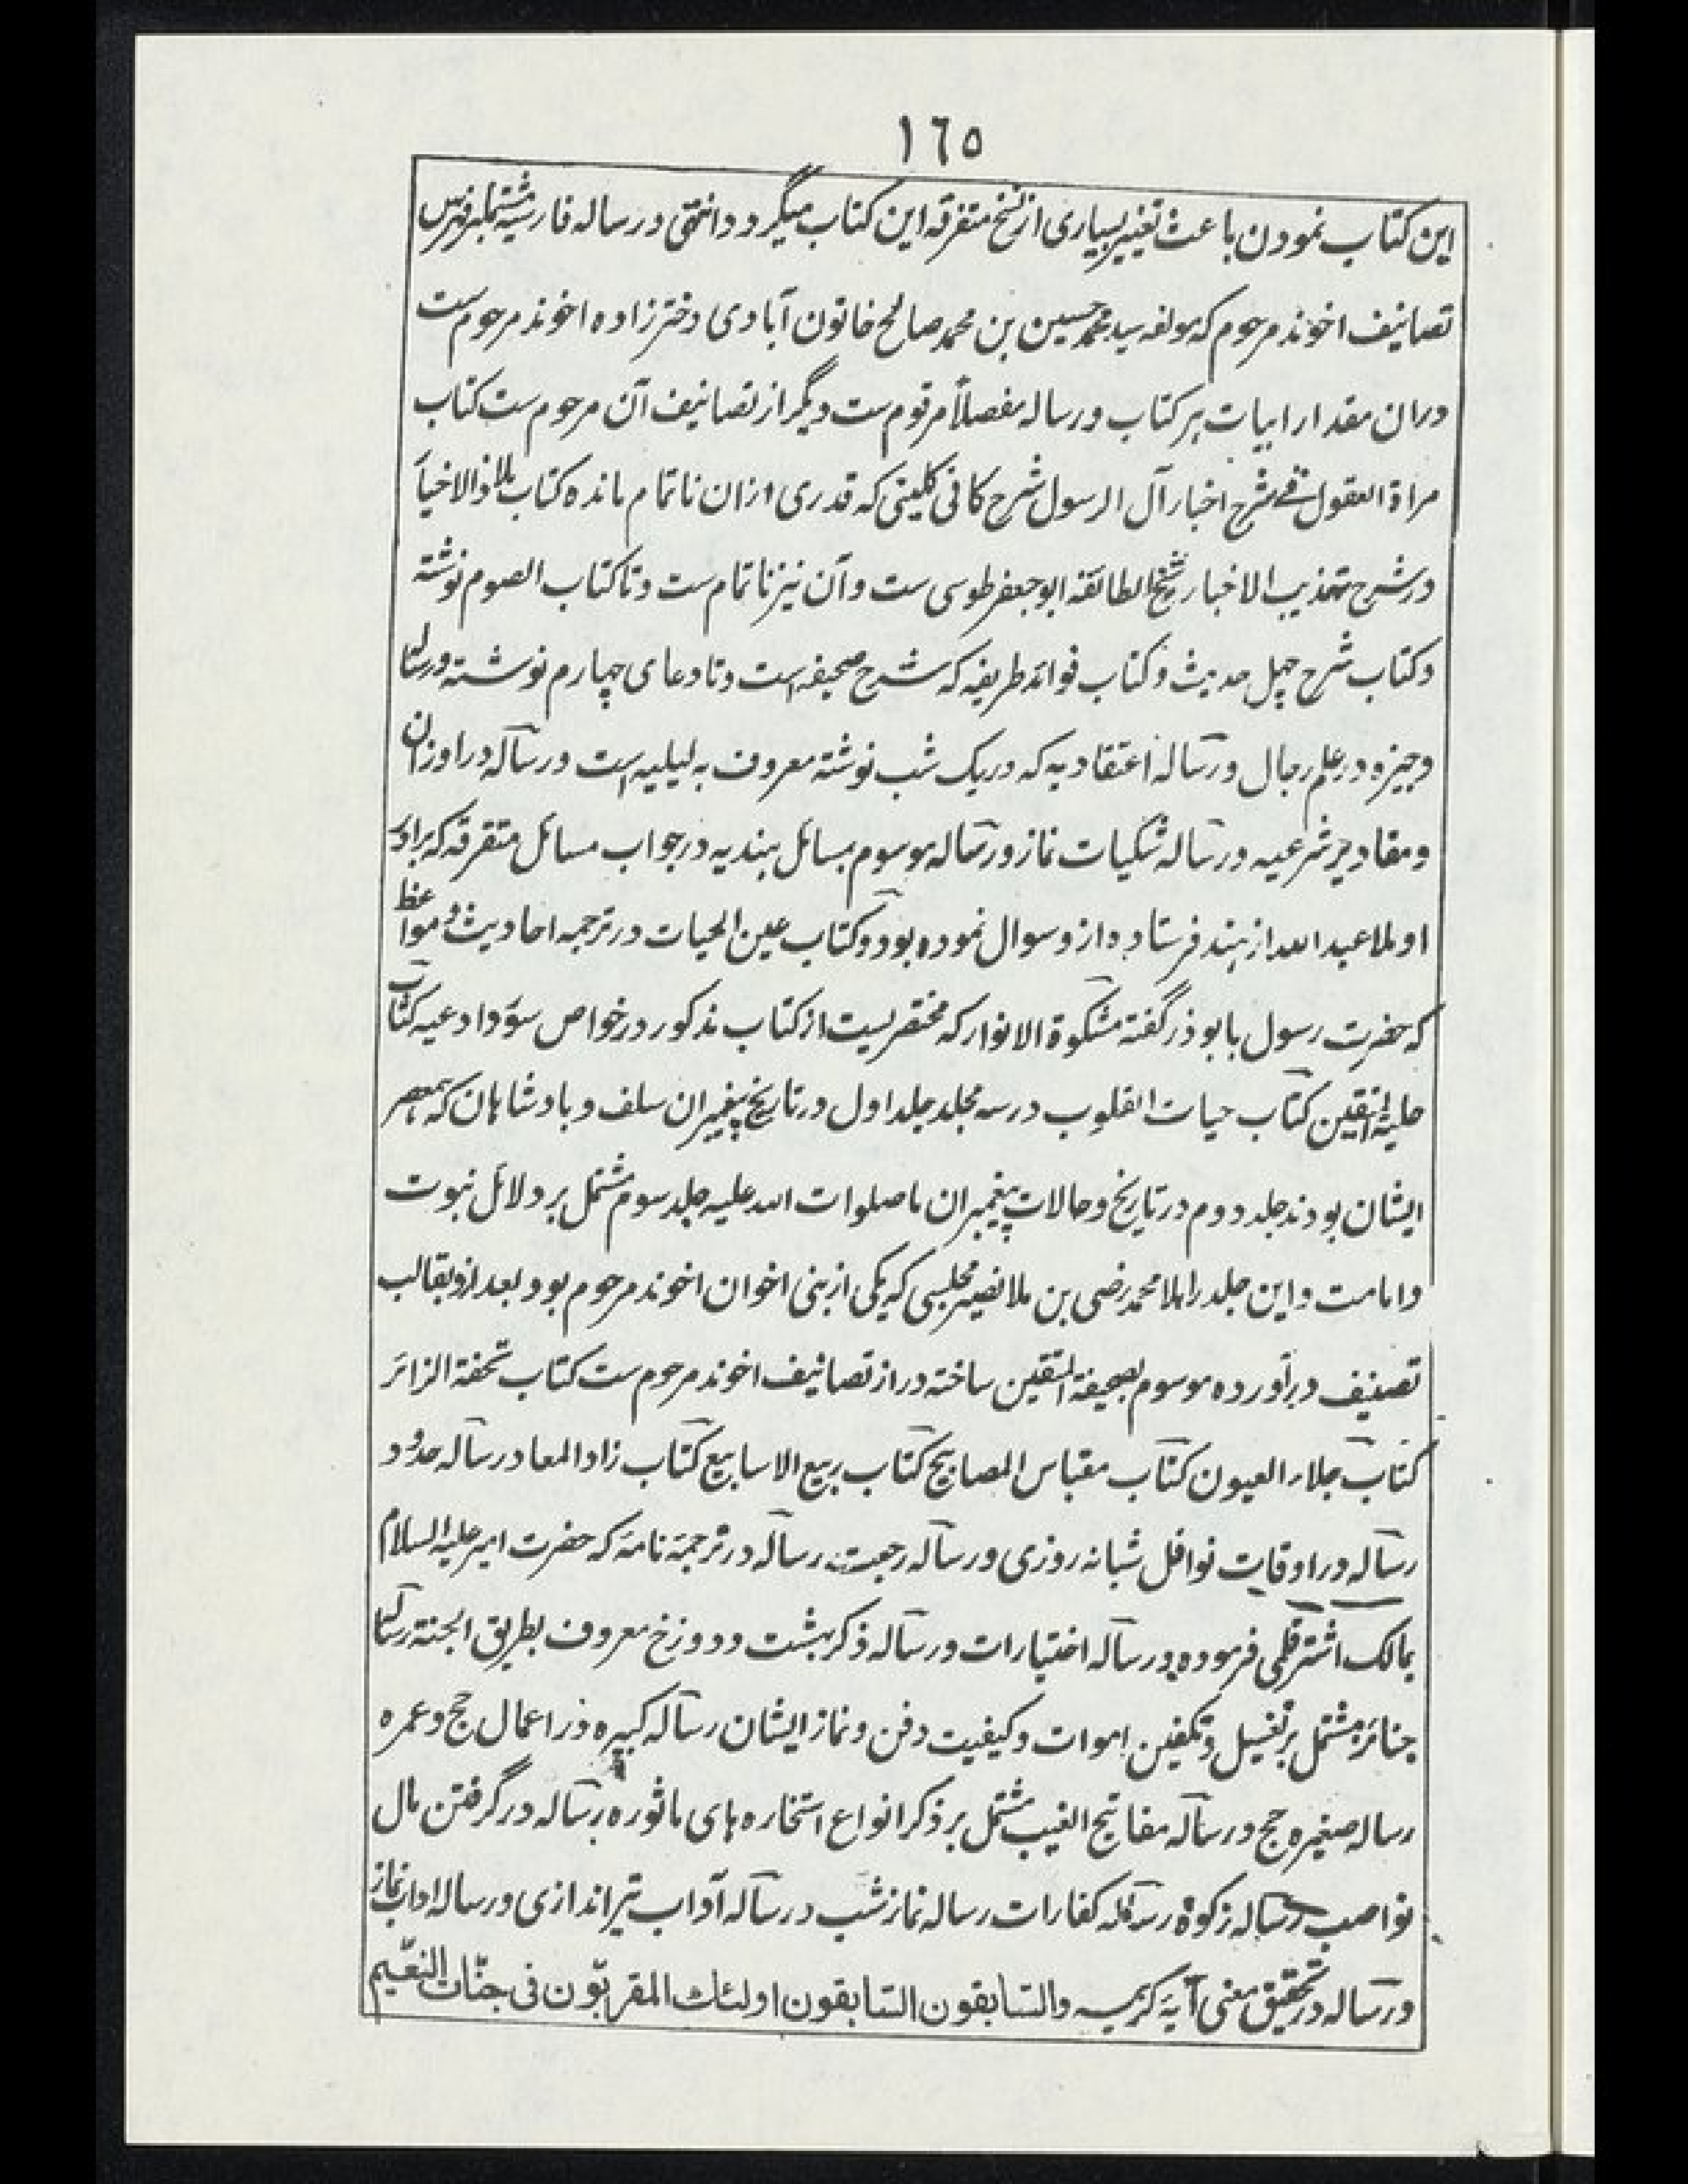 ١٦٥
این کتاب نمودن باعث تغییر بسیاری از نسخ متفرقه این کتاب میگردد انتهی و رساله فارسیه مشتمله بر فهرس
تصانیف اخوند مرحوم که مولفه سید محمد حسین بن محمد صالح خاتون آبادی دختر زاده اخوند مرحوم ست
دران مقدار ابیات هر کتاب و رساله مفصلاً مرقوم ست دیگر از تصانیف آن مرحوم ست کتاب
مراة العقول فے شرح اخبار آل الرسول شرح کافی کلینی که قدری ازان ناتمام مانده کتاب ملاذ الاخیار
در شرح تهذیب الاخبار شیخ الطائفة ابو جعفر طوسی ست و آن نیز ناتمام ست و تا کتاب الصوم نوشته
و کتاب شرح چهل حدیث و کتاب فوائد طریفه که شرح صحیفه است و تا دعای چهارم نوشته و رساله
وجیزه در علم رجال و رساله اعتقادیه که در یک شب نوشته معروف به لیلیه است و رساله در اوزان
و مقادیر شرعیه و رساله شکیات نماز و رساله موسوم بمسائل هندیه در جواب مسائل متفرقه که برادر
او ملا عبد الله از هند فرستاده از و سوال نموده بود و کتاب عین الحیات در ترجمه احادیث و مواعظ
که حضرت رسول بابوذر گفته مشکوة الانوار که مختصریست از کتاب مذکور در خواص سور و ادعیه کتاب
حلیة المتقین کتاب حیات القلوب در سه مجلد جلد اول در تاریخ پیغمبران سلف و بادشاهان که همعصر
ایشان بودند جلد دوم در تاریخ و حالات پیغمبران ما صلوات الله علیه جلد سوم مشتمل بر دلائل نبوت
و امامت و این جلد را ملا محمد رضی بن ملا نصیر مجلسی که یکی از بنی اخوان اخوند مرحوم بود بعد ازو بقالب
تصنیف در آورده موسوم بصحیفة المتقین ساخته و از تصانیف اخوند مرحوم ست کتاب تحفة الزائر
کتاب جلاء العیون کتاب مقباس المصابیح کتاب ربیع الاسابیع کتاب زاد المعاد رساله حدود
رساله در اوقات نوافل شبانه روزی و رساله رجعت رساله در ترجمه نامه که حضرت امیر علیه السلام
بمالک اشتر قلمی فرموده و رساله اختیارات و رساله ذکر بهشت و دوزخ معروف بطریق الجنة رساله
جنائز مشتمل بر تغسیل و تکفین اموات و کیفیت دفن و نماز ایشان رساله کبیره در اعمال حج و عمره
رساله صغیره حج و رساله مفاتیح الغیب مشتمل بر ذکر انواع استخاره های ماثوره رساله در گرفتن مال
نواصب رساله زکوة رساله کفارات رساله نماز شب و رساله آداب تیراندازی و رساله اداب نماز
و رساله در تحقیق معنی آیة کریمه والسّابقون السّابقون اولئك المقربّون فی جنّات النعیم